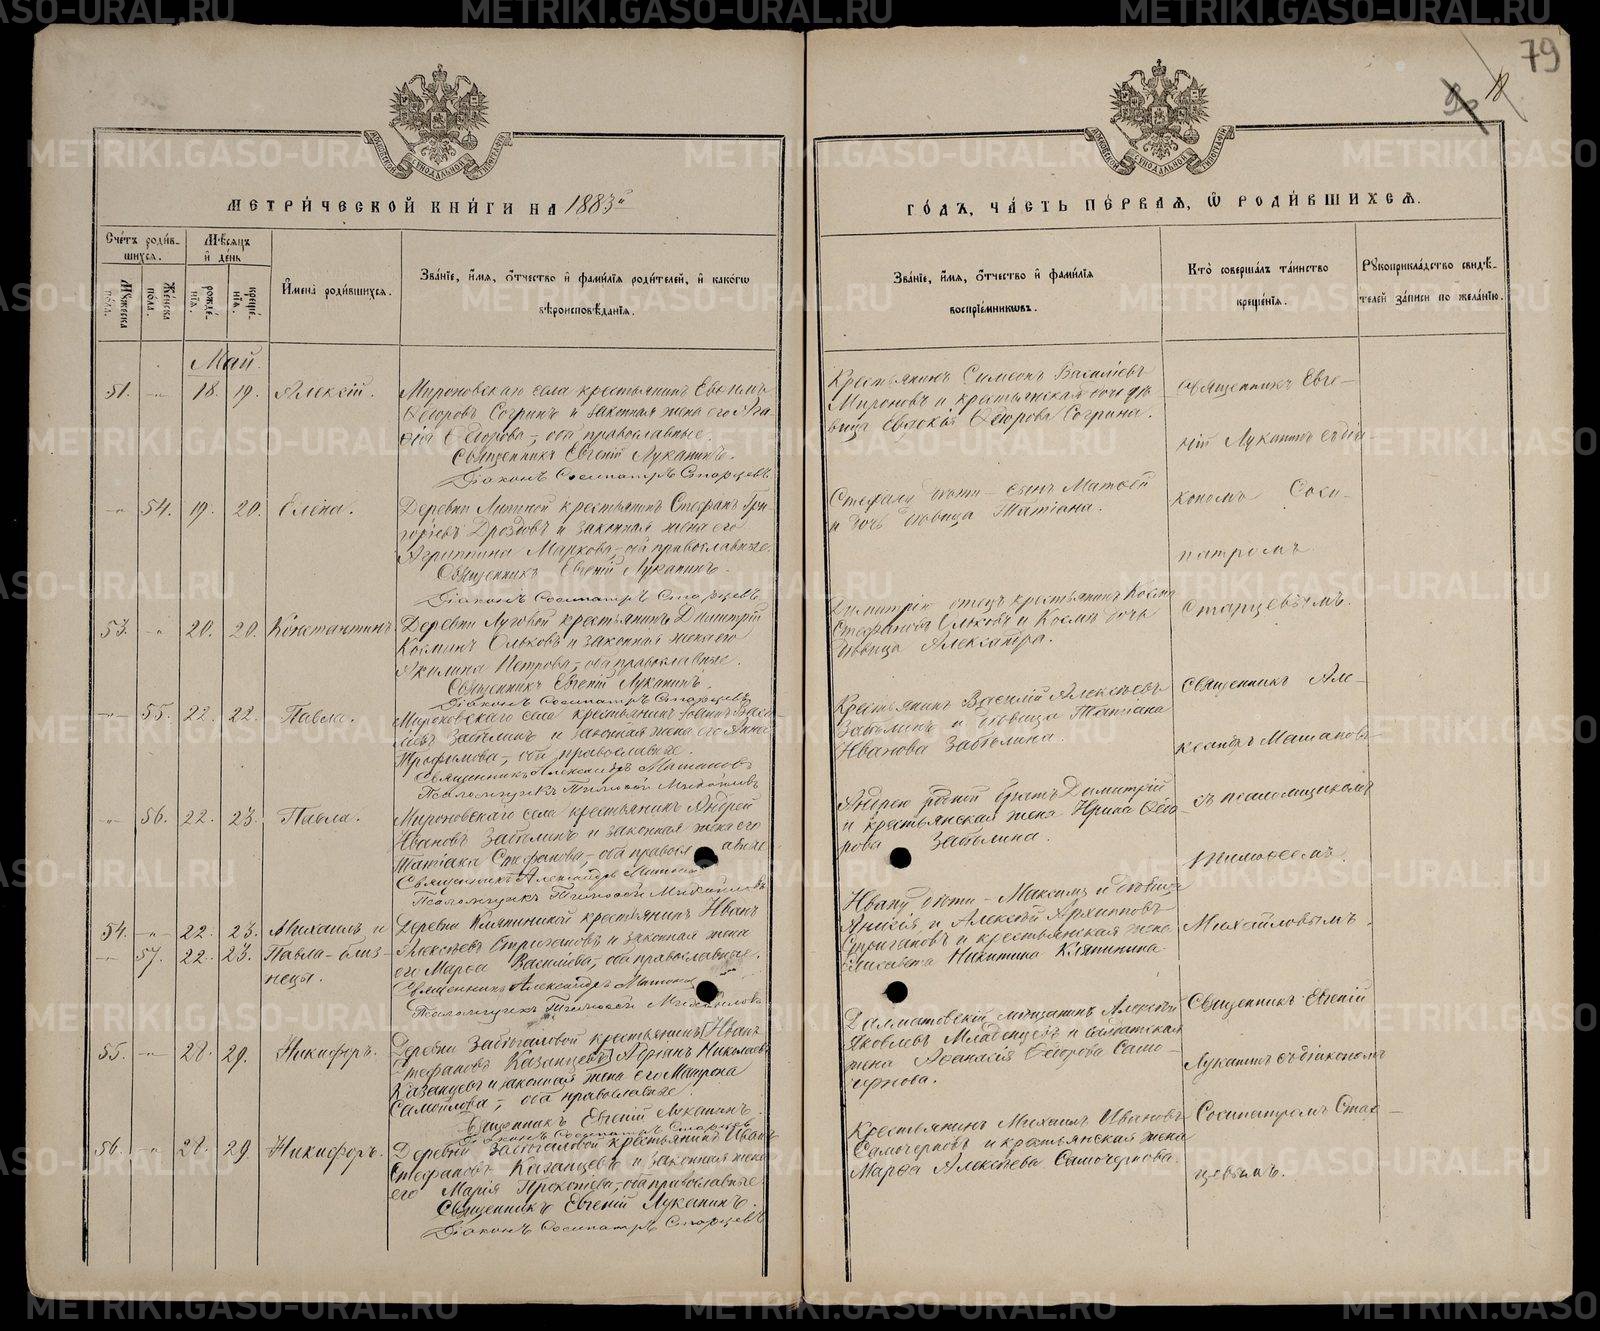 79
18
МЕТРИ́ЧЕСКОЙ КНИ́ГИ НА 1883й
ГО́ДЪ, ЧА́СТЬ ПЕ́РВАЯ, Ѿ РОДИ́ВШИХСЯ.
Сче́тъ роди́вшихся.
Му́жеска по́ла.
Же́нска по́ла.
Мѣ́сяцъ и де́нь
рожде́нїя.
креще́нїя.
И҆мена̀ роди́вшихся.
Зва́нїе, и҆́мя, ѻ҆́тчество и҆ фами́лїя роди́телей, и҆ како́гѡ
вѣроисповѣ́данїя.
Зва́нїе, и҆́мя, ѻ҆́тчество и҆ фами́лїя
воспрїе́мникѡвъ.
Кто̀ соверша́лъ та́инство
креще́нїя.
Рꙋкоприкла́дство свидѣ́-
телей за́писи по жела́нїю.
Май.
51. -"- 18. 19. Алексій.
Мироновскаго села крестьянинъ Евѳимъ
Ѳеодоровъ Согринъ и законная жена его Ага-
ѳія Ѳеодорова, оба православные.
Священникъ Евгеній Луканинъ.
Діаконъ Сосипатръ Старцевъ.
Крестьянинъ Симеонъ Василіевъ
Мироновъ и крестьянская дочь дѣ-
вица Евдокія Ѳеодорова Согрина.
Священникъ Евге-
ній Луканинъ съ діа-
кономъ Соси-
патромъ
Старцевымъ.
-"- 54. 19. 20. Елена.
Деревни крестьянинъ Стефанъ Гри-
горіевъ Дроздовъ и законная жена его
Агриппина Маркова, оба православные.
Священникъ Евгеній Луканинъ.
Діаконъ Сосипатръ Старцевъ.
Стефану дѣти - сынъ Матѳей
и дочь дѣвица Татіана.
53. -"- 20. 20. Константинъ.
Деревни Луговой крестьянинъ Димитрій
Косминъ Ольковъ и законная жена его
Акилина Петрова, оба православные.
Священникъ Евгеній Луканинъ.
Діаконъ Сосипатръ Старцевъ.
Димитрія отецъ крестьянинъ Косма
Стефановъ Ольковъ и Космы дочь
дѣвица Александра.
-"- 55. 22. 22. Павла.
Мироновскаго села крестьянинъ Іоаннъ Васи-
ліевъ Заболинъ и законная жена его Анна
Трофимова, оба православные.
Священникъ Александръ
Псаломщикъ Тимоѳей Михайловъ
Крестьянинъ Василій Алексѣевъ
Заболинъ и дѣвица Татіана
Иванова Заболина.
Священникъ Але-
ксандръ
съ псаломщикомъ
Тимоѳеемъ
Михайловымъ.
-"- 56. 22. 23. Павла.
Мироновскаго села крестьянинъ Андрей
Ивановъ Заболинъ и законная жена его
Татіана Стефанова, оба православные
Священникъ Александръ
Псаломщикъ Тимоѳей Михайловъ
Андрею родной братъ Димитрій
и крестьянская жена Ирина Ѳеодо-
рова Заболина.
54. -"- 22. 23. Михаилъ и
-"- 57. 22. 23. Павла - близ-
нецы.
Деревни Кляпининой крестьянинъ Иванъ
Алексѣевъ Стригановъ и законная жена
его Марѳа Василіева, оба православные.
Священникъ Александръ
Псаломщикъ Тимоѳей Михайловъ
Ивану дѣти - Максимъ и дѣвица
Анисія и Алексѣй Архиповъ
Стригановъ и крестьянская жена
Елисавета Никитина Кляпинина.
55. -"- 28. 29. Никифоръ.
Деревни крестьянинъ Иванъ
Стефановъ Казанцевъ Адріанъ Николаевъ
Казанцевъ и законная жена его Матрона
Самойлова, оба православные.
Священникъ Евгеній Луканинъ.
Діаконъ Сосипатръ Старцевъ
Далматовскій мѣщанинъ Алексѣй
Яковлевъ Младенцевъ и солдатская
жена Аѳанасія Ѳеодорова Само-
чернова.
Священникъ Евгеній
Луканинъ съ діакономъ
Сосипатромъ Стар-
цевымъ.
56. -"- 28. 29. Никифоръ.
Деревни крестьянинъ Иванъ
Стефановъ Казанцевъ и законная жена
его Марія Прокопіева, оба православные
Священникъ Евгеній Луканинъ.
Діаконъ Сосипатръ Старцевъ
Крестьянинъ Михаилъ Ивановъ
Самочерновъ и крестьянская жена
Марѳа Алексѣева Самочернова.
METRIKI.GASO-URAL.RU